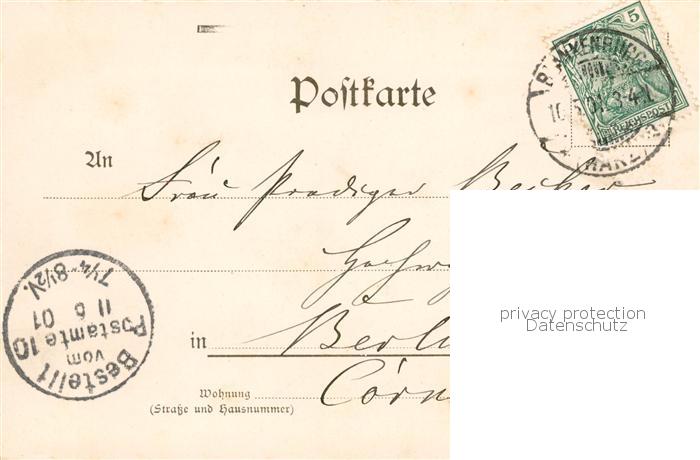 Postkarte
5
REICHSPOST
BLANKENBURG
(HARZ)
An
Frau Prediger Becker
privacy protection
Datenschutz
in Berlin
Wohnung
(Straße und Hausnummer)
Bestellt
vom
Postamte 10
11 6 01
7¼-8½V.